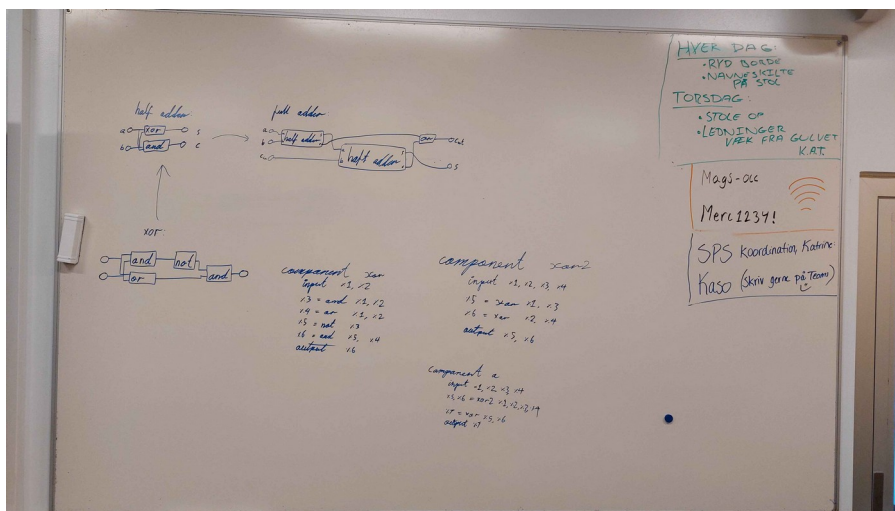 half adder:
a xor s
b and c
full adder:
a
b half adder
c
a
b half adder
or out
s
xor:
and not
or and
component xor
input r1, r2
r3 = and r1, r2
r4 = or r1, r2
r5 = not r3
r6 = and r5, r4
output r6
component xor2
input r1, r2, r3, r4
r5 = xor r1, r3
r6 = xor r2, r4
output r5, r6
component a
input r1, r2, r3, r4
r5, r6 = xor2 r1, r2, r3, r4
r7 = xor r5, r6
output r7
HVER DAG:
• RYD BORDE
• NAVNESKILTE
PÅ STOL
TORSDAG:
• STOLE OP
• LEDNINGER
VÆK FRA GULVET
K.A.T.
Mags-olc
Merc1234!
SPS Koordination, Katrine
Kaso (skriv gerne på Teams)